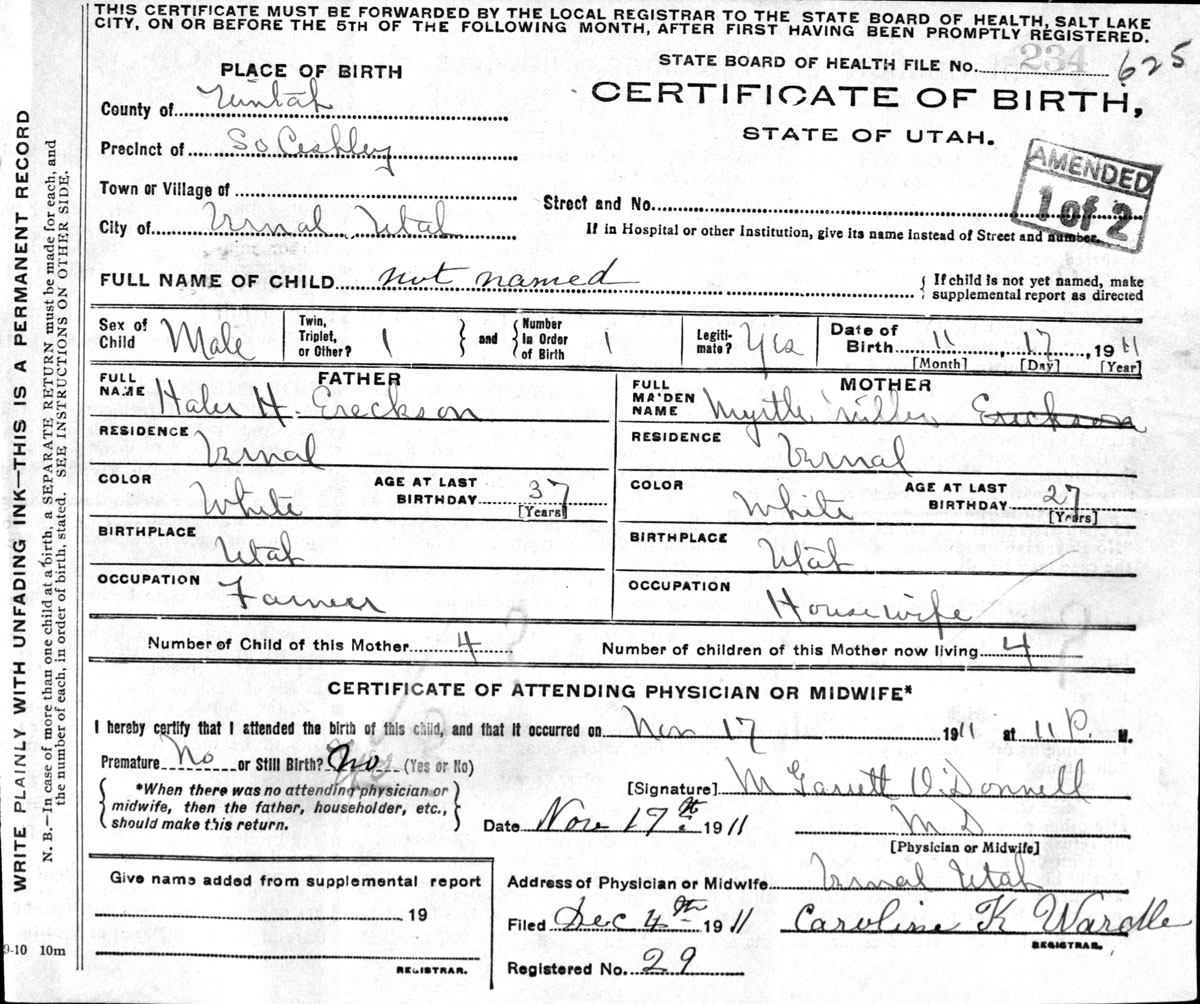 THIS CERTIFICATE MUST BE FORWARDED BY THE LOCAL REGISTRAR TO THE STATE BOARD OF HEALTH, SALT LAKE
CITY, ON OR BEFORE THE 5TH OF THE FOLLOWING MONTH, AFTER FIRST HAVING BEEN PROMPTLY REGISTERED.
STATE BOARD OF HEALTH FILE No. 234 625
PLACE OF BIRTH
CERTIFICATE OF BIRTH,
STATE OF UTAH.
AMENDED
1 of 2
County of Uintah
Precinct of So Ashley
Town or Village of
Street and No.
City of Vernal Utah
If in Hospital or other Institution, give its name instead of Street and number.
FULL NAME OF CHILD not named
{ If child is not yet named, make
supplemental report as directed
Sex of Child Male
Twin, Triplet, or Other? 1 } and { Number In Order of Birth 1
Legiti-mate? Yes
Date of Birth 11, 17, 1911
[Month] [Day] [Year]
FATHER
FULL NAME H. Ereckson
RESIDENCE Vernal
COLOR White
AGE AT LAST BIRTHDAY 37
[Years]
BIRTHPLACE Utah
OCCUPATION Farmer
MOTHER
FULL MAIDEN NAME Myrtle Ereckson
RESIDENCE Vernal
COLOR White
AGE AT LAST BIRTHDAY 27
[Years]
BIRTHPLACE Utah
OCCUPATION Housewife
Number of Child of this Mother 4
Number of children of this Mother now living 4
CERTIFICATE OF ATTENDING PHYSICIAN OR MIDWIFE*
I hereby certify that I attended the birth of this child, and that it occurred on Nov 17 1911 at 11 P. M.
Premature No or Still Birth? No (Yes or No)
*When there was no attending physician or
midwife, then the father, householder, etc.,
should make this return.
[Signature] M Garrett O'Donnell
Date Nov 17th 1911
M D
[Physician or Midwife]
Give name added from supplemental report
19
REGISTRAR.
Address of Physician or Midwife Vernal Utah
Filed Dec 4th 1911 Caroline K Wardle
REGISTRAR.
Registered No. 29
9-10 10m
WRITE PLAINLY WITH UNFADING INK—THIS IS A PERMANENT RECORD
N. B.—In case of more than one child at a birth, a SEPARATE RETURN must be made for each, and
the number of each, in order of birth, stated. SEE INSTRUCTIONS ON OTHER SIDE.